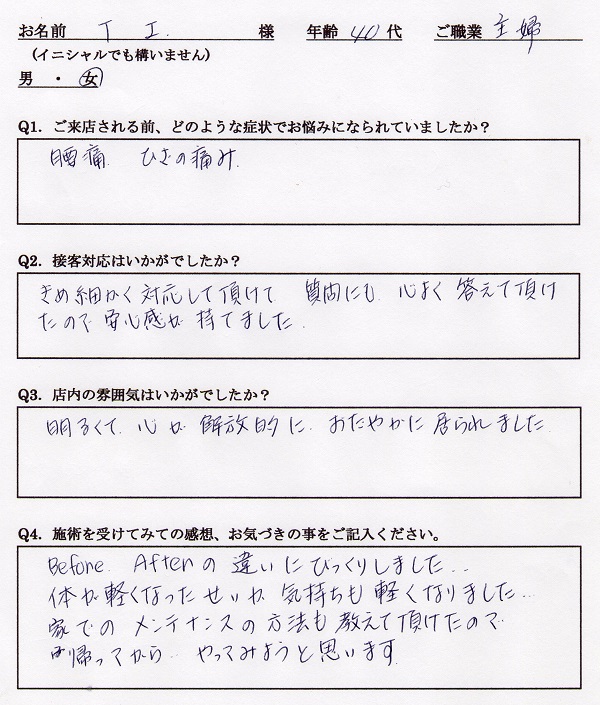 お名前 T I. 様 年齢 40 代 ご職業 主婦
(イニシャルでも構いません)
男 ・ 女
Q1. ご来店される前、どのような症状でお悩みになられていましたか?
腰痛 ひざの痛み
Q2. 接客対応はいかがでしたか?
きめ細かく対応して頂けて 質問にも 心よく答えて頂け
たので 安心感が 持てました.
Q3. 店内の雰囲気はいかがでしたか?
明るくて 心が 解放的に. おだやかに居られました
Q4. 施術を受けてみての感想、お気づきの事をご記入ください。
Before. Afterの違いにびっくりしました...
体が軽くなったせいか 気持ちも 軽くなりました...
家での メンテナンスの方法も教えて頂けたので
帰ってから.. やってみようと思います.